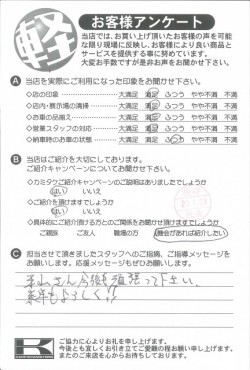 軽
お客様アンケート
当店では、お買い上げ頂いたお客様の声を可能
な限り現場に反映し、お客様により良い商品と
サービスを提供する事に努めています。
大変お手数ですが是非お声をお聞かせ下さい。
A 当店を実際にご利用になった印象をお聞かせ下さい。
・店の印象 大満足 満足 ふつう やや不満 不満
・店内・展示場の清掃 大満足 満足 ふつう やや不満 不満
・お車の品揃え 大満足 満足 ふつう やや不満 不満
・営業スタッフの対応 大満足 満足 ふつう やや不満 不満
・納車時のお車の状態 大満足 満足 ふつう やや不満 不満
B 当店はご紹介を大切にしております。
ご紹介キャンペーンについてお聞かせ下さい。
◇カミタケご紹介キャンペーンのご説明はありましたでしょうか
はい いいえ
◇ご紹介を頂けますでしょうか
はい いいえ
◇具体的にご紹介頂ける方とのご関係をお聞かせ頂けますでしょうか
ご親族 ご友人 職場の方 機会があれば紹介したい
C 担当させて頂きましたスタッフへのご指摘、ご指導メッセージを
お願いします。応援メッセージもぜひお願いします。
さん今後も頑張って下さい。
来年もよろしく!!
K
ご協力に心よりお礼を申し上げます。
今後とも宜しくお引き立てご愛顧の程お願い申し上げます。
またのご来店を心からお待ちしております。